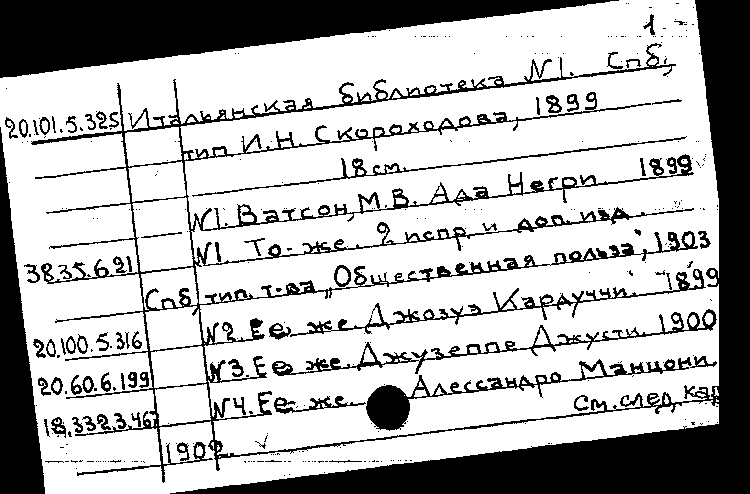 1
20.101.5.325 Итальянская библиотека N1. Спб,
тип И.Н. Скороходова, 1899
18 см.
N1. Ватсон, М.В. Ада Негри. 1899
38.35.6.21 N1. То-же. 2 испр. и доп. изд.
Спб, тип. т-ва „Общественная польза", 1903
20.100.5.316 N2. Ее же. Джозуэ Кардуччи. 1899
20.60.6.199 N3. Ее же. Джузеппе Джусти. 1900
18.332.3.467 N4. Ее же. Алессандро Манцони.
1902. См. след. кар